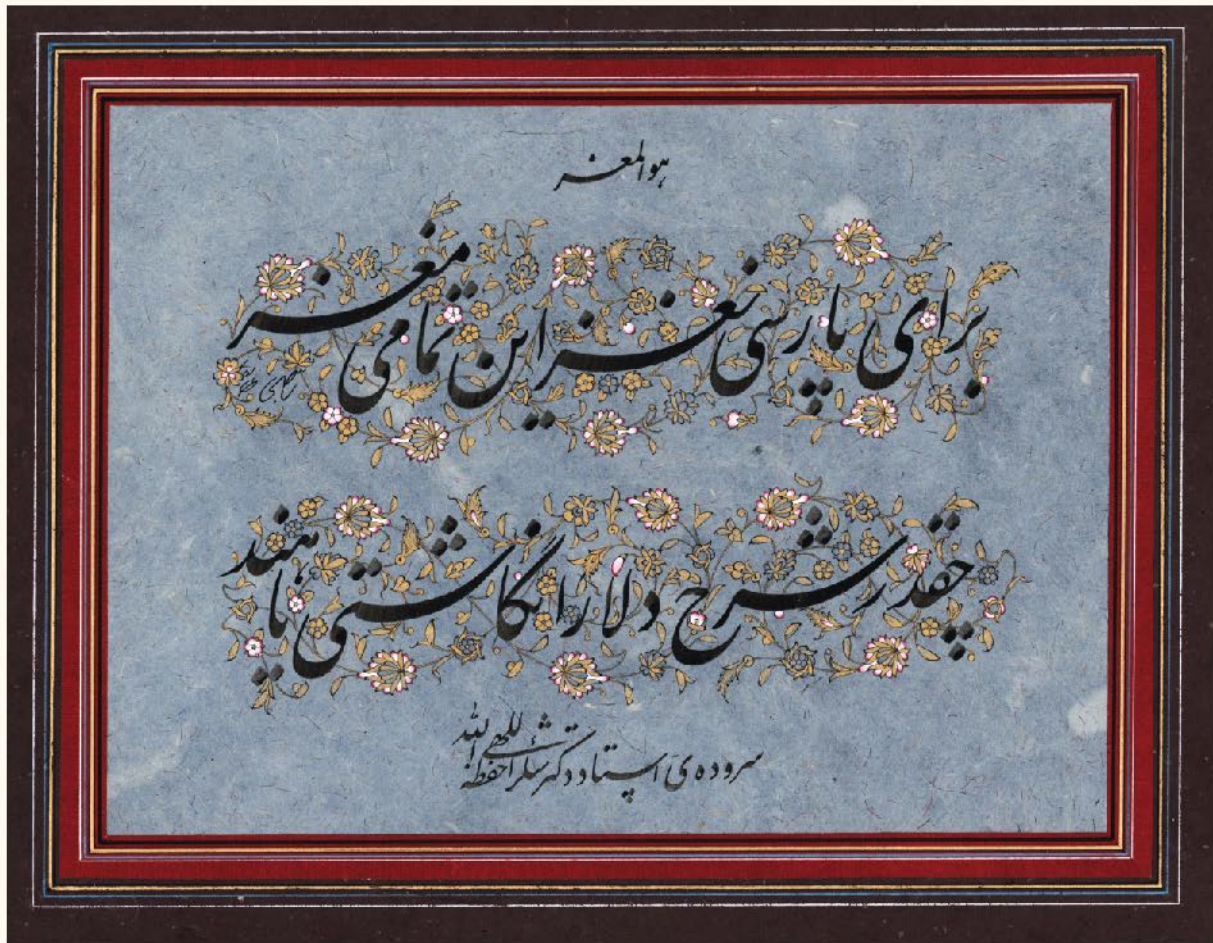 هوالمعز
برای پارسی نغز این تمامی مغز
چقدر شرح دلارا نگاشتی
سروده‌ی استاد دکتر شکراللهی حفظه الله